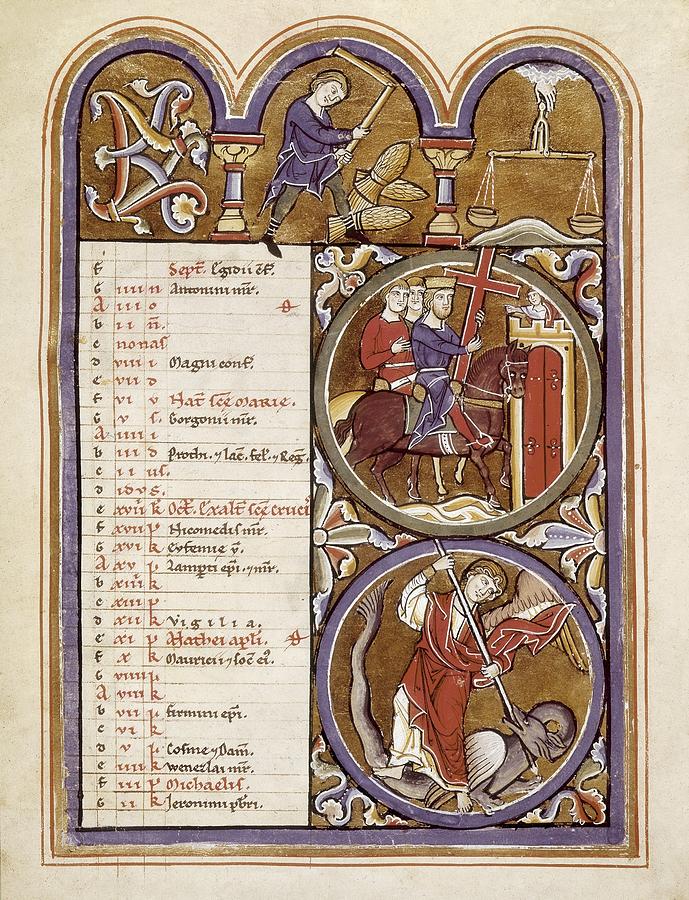 KL
f Sept. Egidii cf.
G iiii n Antonini mr.
A iii o D
b ii n.
c nonas
d viii i Magni conf.
e vii d
f vi v Nat scē Marie.
G v s. Gorgonii mr.
A iiii i
b iii d Prothi. ⁊ Iac. fel. ⁊ Reg.
c ii us.
d idvs.
e xviii k Oct. Exalt scē crucis
f xvii k Nicomedis mr.
G xvi k Eufemie v.
A xv k Lamperti epi. ⁊ mr.
b xiiii k
c xiii k
d xii k Vigilia.
e xi k Mathei apli. D
f x k Mauricii ⁊ soc ei.
G viiii k
A viii k
b vii k firmini epi.
c vi k
d v k Cosme ⁊ Dam.
e iiii k Wenezlai mr.
f iii k Michaelis.
G ii k Jeronimi pbri.